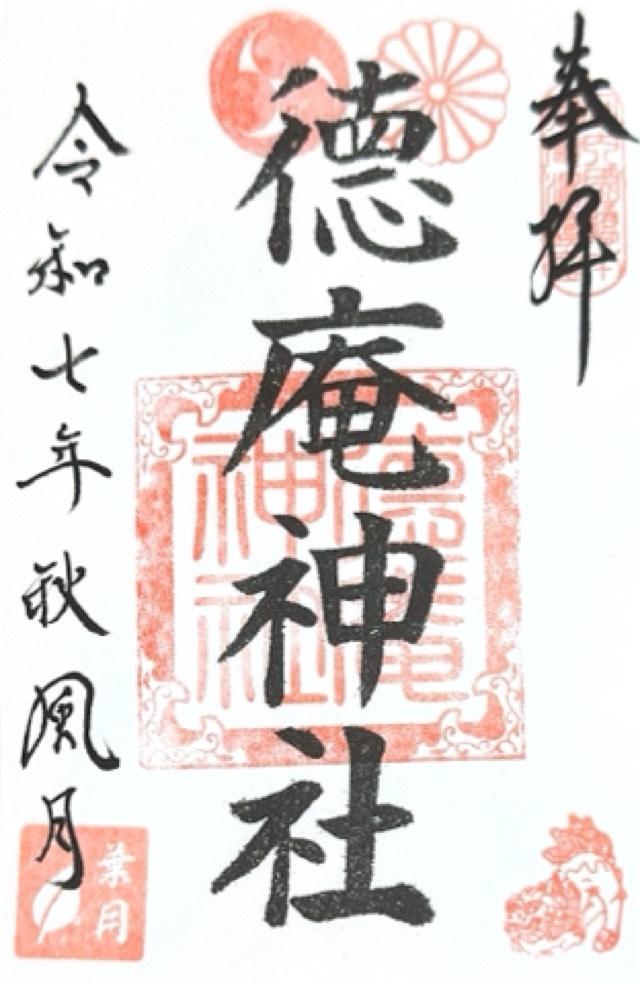 奉拝
徳庵神社
徳庵
神社
令和七年秋風月
葉月